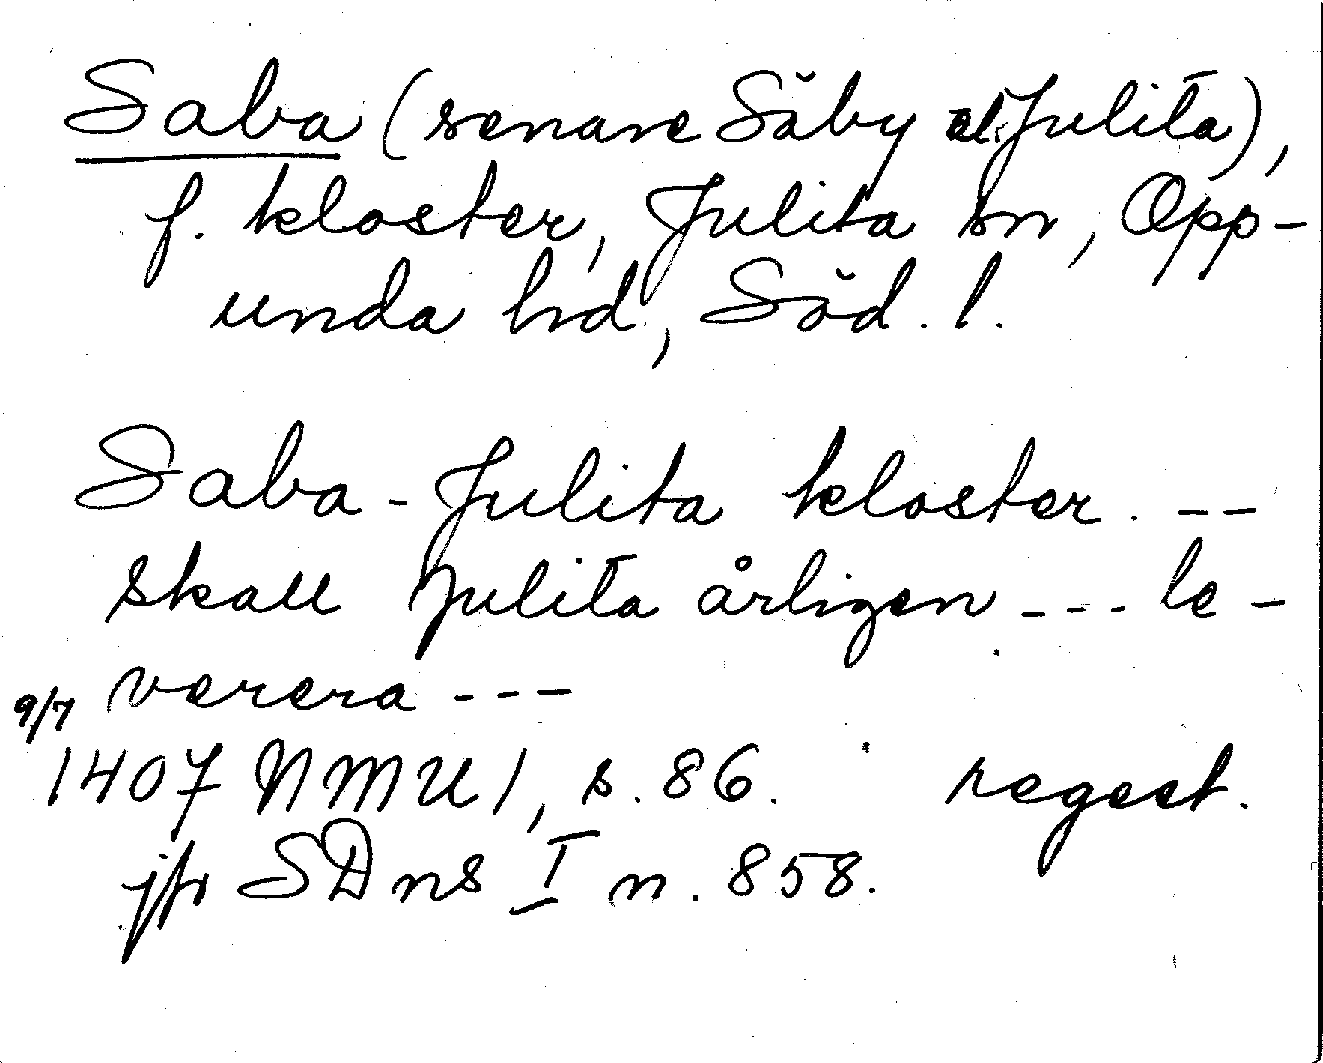 Saba (senare Säby el. Julita),
f. kloster, Julita sn, Opp-
unda hd, Söd. l.
Saba-Julita kloster. --
skall Julita årligen --- le-
verera ---
9/7
1407 NMU 1, s. 86. regest.
jfr SD ns I n. 858.